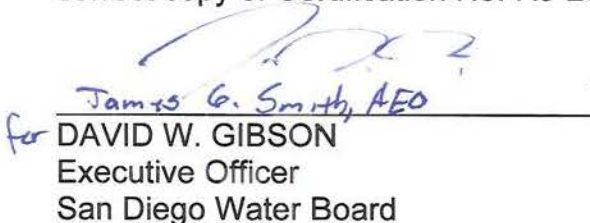 James G. Smith, AEO
for DAVID W. GIBSON
Executive Officer
San Diego Water Board